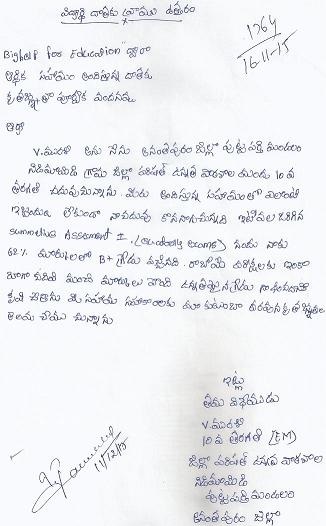 విద్యార్థి దాతకు వ్రాయు ఉత్తరం
1764
16-11-15
Bighelp for Education ద్వారా
ఆర్థిక సహాయం అందిస్తున్న దాతకు
కృతజ్ఞతా పూర్వక వందనము
ఆర్యా
V. మురళి అను నేను అనంతపురం జిల్లా పుట్టపర్తి మండలం
నిడిమామిడి గ్రామం జిల్లా పరిషత్ ఉన్నత పాఠశాల యందు 10 వ
తరగతి చదువుచున్నాను. మీరు అందిస్తున్న సహాయంతో ఎలాంటి
ఇబ్బందులు లేకుండా నా చదువు కొనసాగుచున్నది ఇటీవల జరిగిన
summative Assesment I నందు నాకు
62% మార్కులతో B+ గ్రేడు వచ్చినది. రాబోయే పరీక్షలకు ఇంకా
బాగా చదివి మంచి మార్కులు
కృషి చేస్తాను మీ సహాయ సహకారాలకు మా కుటుంబం తరపున కృతజ్ఞతలు
తెలియ చేయు చున్నాను
ఇట్లు
తమ విధేయుడు
V. మురళి
10 వ తరగతి [EM]
జిల్లా పరిషత్ ఉన్నత పాఠశాల
నిడిమామిడి
పుట్టపర్తి మండలం
అనంతపురం జిల్లా
11/12/15